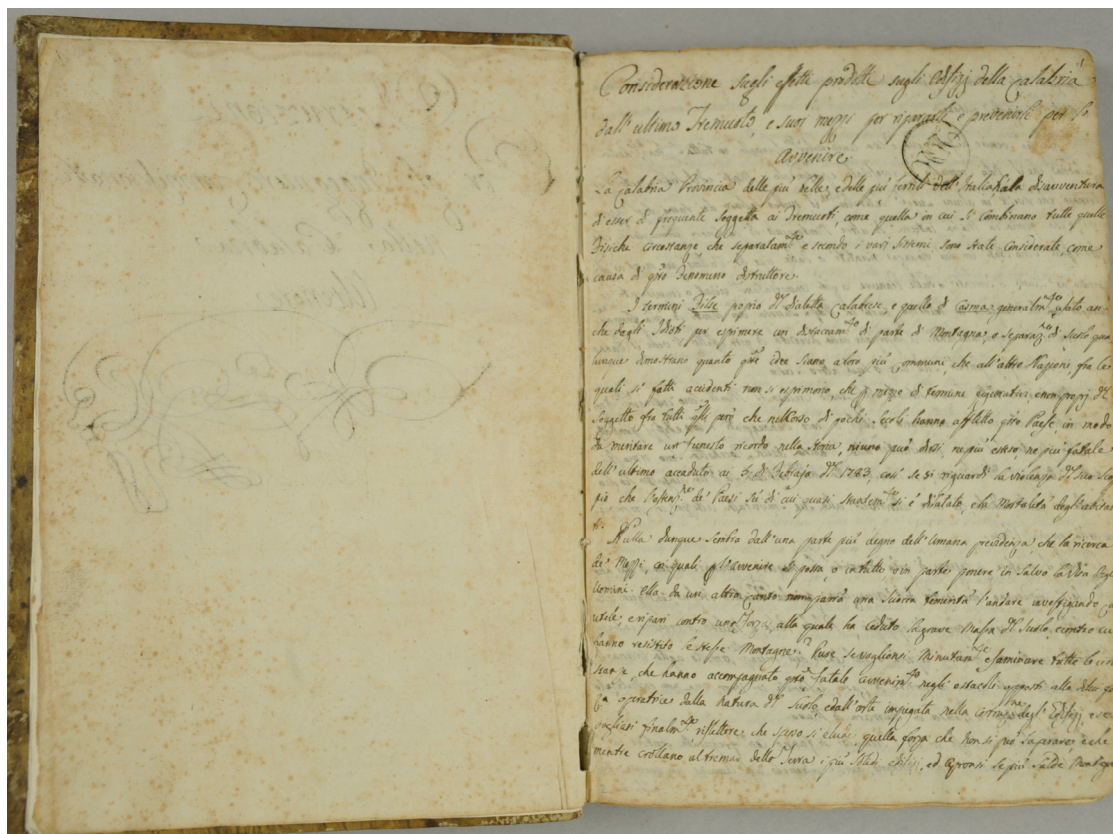 Considerazione sugli effetti prodotti sugli Edifizj della Calabria
dall'ultimo Tremuoto e suoi mezzi per ripararli e prevenirli per lo
Avvenire
La Calabria Provincia delle più belle, e delle più fertili dell'Italia ha la disavventura
di esser di frequente soggetta ai Tremuoti, come quella in cui si combinano tutte quelle
Fisiche circostanze che separatam.te e secondo i varj sistemi sono state considerate come
causa di q.sto Fenomeno distruttore.
I termini proprio d.l Dialetto Calabrese, e quello di generalm.te usato an
che degli Idioti per esprimere un distaccam.to di parte di Montagna, o separaz.ne di Suolo qua
lunque dimostrano quanto q.ste idee siano a loro più communi, che all'altre Nazioni, fra le
quali sì fatti accidenti non si esprimono, che p. mezzo di termine figurativi, e non proprj d.l
Soggetto fra tutti q.lli però che nel corso di pochi Secoli hanno afflitto q.sto Paese, in modo
da meritare un funesto ricordo nella Storia, niuno può dirsi, ne più esteso ne più fatale
dell'ultimo accaduto ai 5. di Febrajo d.l 1783, così se si riguardi la violenza d.l suo Scop
pio che l'estenz.ne de' Paesi Sù di cui quasi si è dilatato, e la Mortalità degl'abitan
ti.
Nulla dunque sembra dall'una parte più degno dell'Umana previdenza, che la ricerca
de' Mezzi, co' quali p. l'avvenire si possa, o in tutto, o in parte ponere in Salvo la Vita degl
Uomini. Ella da un altro canto non parrà una temerità l'andare investigando
utile, e ripari contro una Forza, alla quale ha ceduto la grave Massa d.l Suolo, e contro cui
hanno resistito le stesse Montagne? Pure se voglionsi Minutam.te esaminare tutte le circo
stanze, che hanno accompagnato q.sto fatale avvenim.to negli ostacoli opposti alla
za operatrice dalla Natura d.l Suolo, e dall'arte impiegata nella degl'Edifizj, e se
vogliasi finalm.te riflettere, che spesso si elude quella forza che non si può superare, e che
mentre crollano al tremar della Terra i più Solidi edifizj, ed apronsi le più Salde Montagne